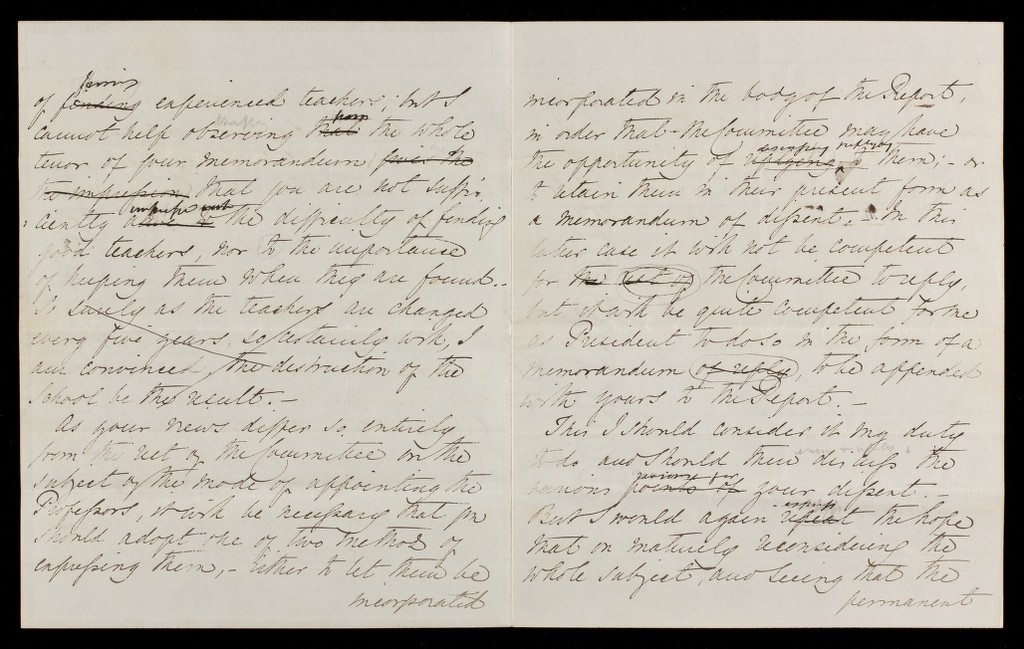 of finding experienced teachers; but I
cannot help observing that from the whole
tenor of your memorandum gives the
the impression that you are not suffi-
ciently alive to the difficulty of finding
good teachers, nor to the importance
of keeping them when they are found.-
So surely as the teachers are changed
every five years, so certainly will, I
am convinced, the destruction of the
School be the result.-
As your views differ so entirely
from the rest of the Committee on the
subject of the mode of appointing the
Professors, it will be necessary that you
should adopt one of two methods of
expressing them,- Either to let them be
incorporated
incorporated in the body of the Report,
in order that the Committee may have
the opportunity of replying to them;- or
to retain them in their present form as
a memorandum of dissent.- In this
latter case it will not be competent
for the rest of the Committee to reply,
but it will be quite competent for me
as President to do so in the form of a
memorandum of reply, to be appended
with yours to the Report.-
This I should consider it my duty
to do and should then discuss the
various points of your dissent.-
But I would again express repeat the hope
that on maturely reconsidering the
whole subject, and seeing that the
permanent